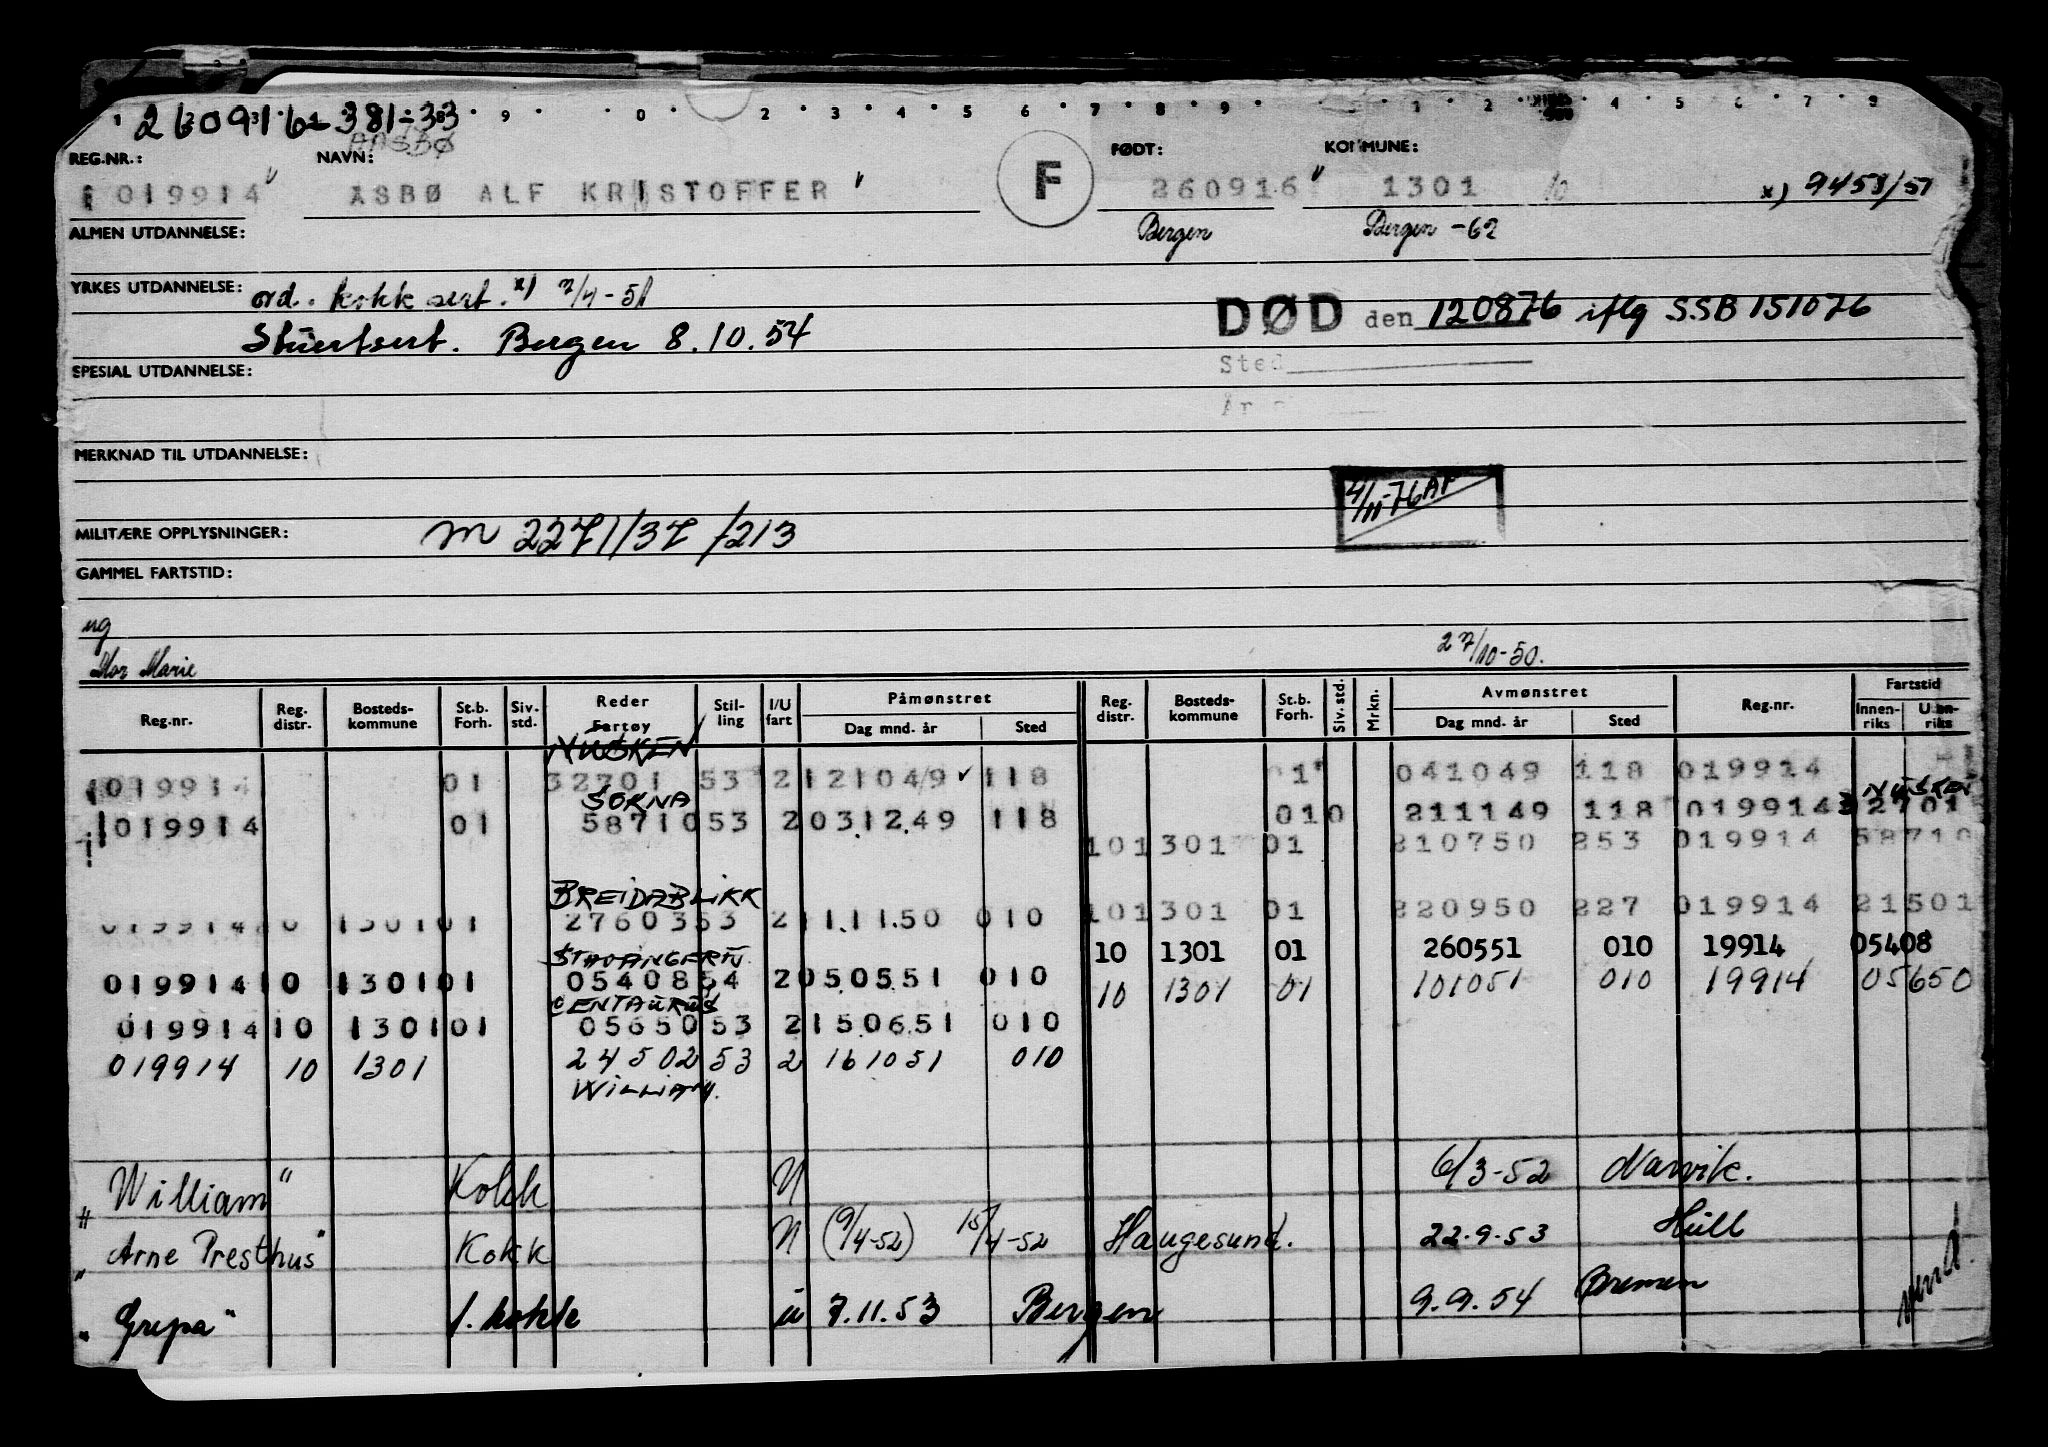 260916 381-33
AASBØ
9 0 2 3 4 5 6 7 8 9 1 2 4 5 6 7 8 9
REG.NR.: NAVN: FØDT: KOMMUNE:
019914 ASBØ ALF KRISTOFFER F 260916 1301 10 x) 9458/51
ALMEN UTDANNELSE: Bergen Bergen -62
YRKES UTDANNELSE: ord. kokk sert. x) 7/4-51
DØD den 120876 iflg SSB 151076
Stuertsert. Bergen 8.10.54
Sted
SPESIAL UTDANNELSE:
År
MERKNAD TIL UTDANNELSE:
4/11-76 AF
MILITÆRE OPPLYSNINGER: m 2271/37/213
GAMMEL FARTSTID:
ug
Mor Marie 27/10-50.
Reg.nr. Reg. distr. Bosteds- kommune St.b. Forh. Siv. std. Reder Fartøy Stil- ling I/U fart Påmønstret Dag mnd. år Sted Reg. distr. Bosteds- kommune St.b. Forh. Siv. std. Mrkn. Avmønstret Dag mnd. år Sted Reg.nr. Fartstid Innen- riks Uten- riks
NUSKEN
019914 01 32701 53 2 121049 118 01 041049 118 019914
SORNA NUSKEN
019914 01 58710 53 2 031249 118 010 211149 118 019914 32701
101301 01 210750 253 019914 58710
BREIDABLIKK
019914 10 1301 01 27603 53 2 111150 010 101301 01 220950 227 019914 21501
STAVANGERFJ. 10 1301 01 260551 010 19914 05408
019914 10 1301 01 05408 54 2 050551 010 10 1301 01 101051 010 19914 05650
CENTAURUS
019914 10 1301 01 05650 53 2 150651 010
019914 10 1301 24502 53 2 161051 010
WILLIAM.
"William" Kokk U 6/3-52 Narvik.
"Arne Presthus" Kokk U (9/4-52) 15/4-52 Haugesund. 22.9.53 Hull
"Grepa" 1. kokk u 7.11.53 Bergen 9.9.54 Bremen